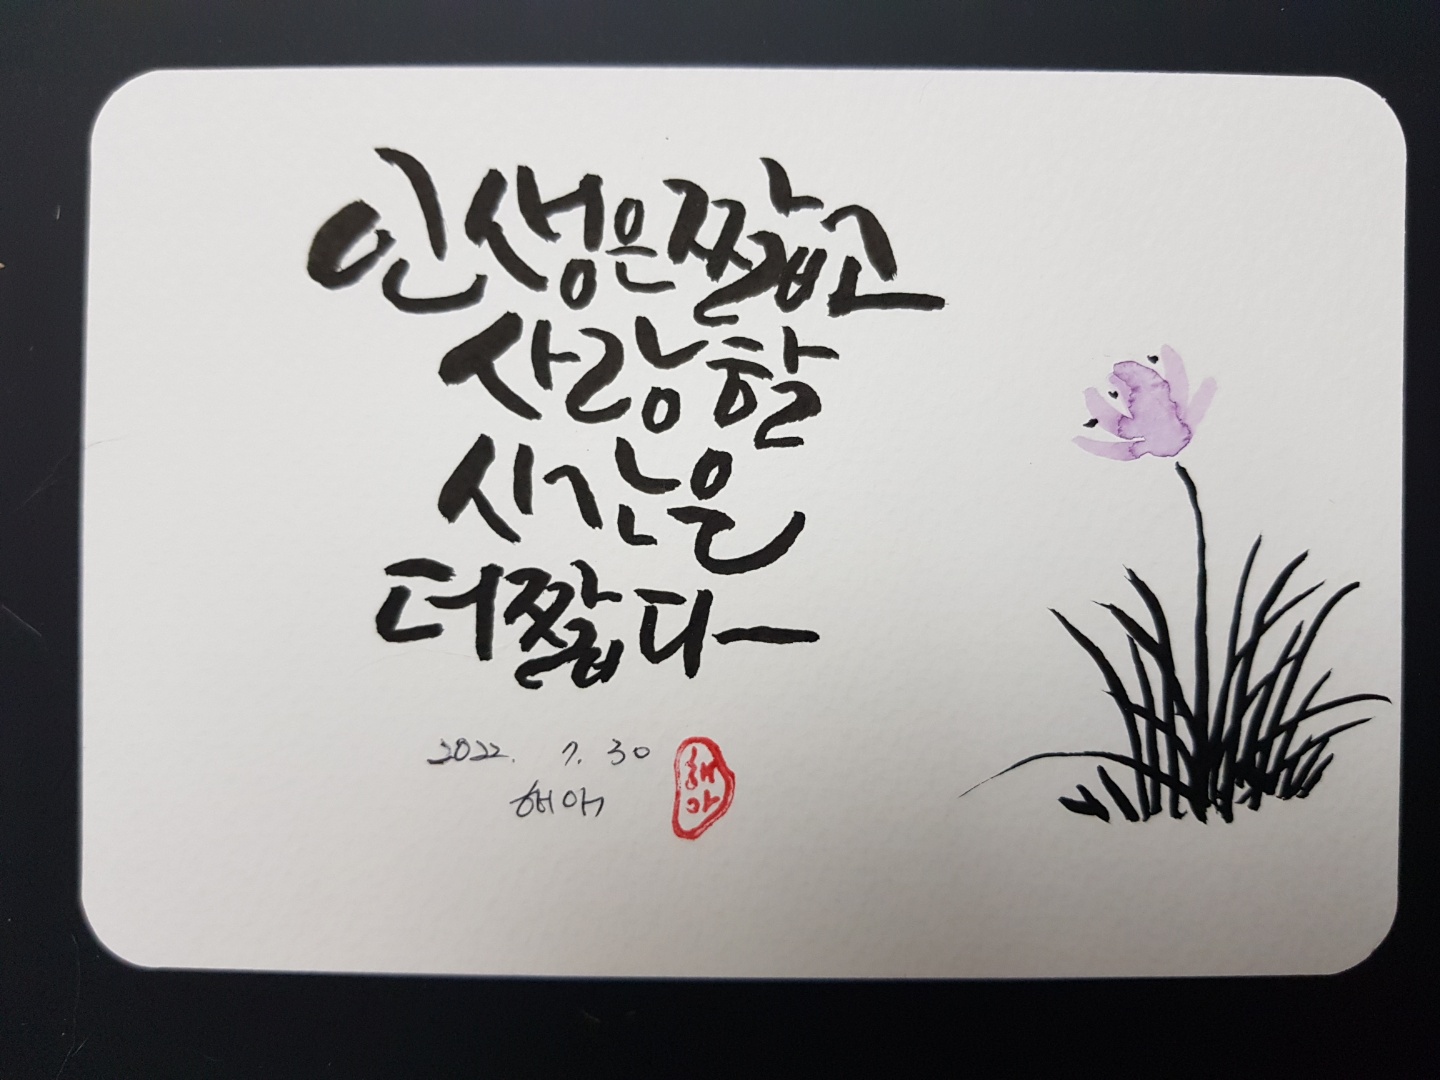 인생은 짧고
사랑할
시간은
더 짧다
2022. 7. 30
해아
해아